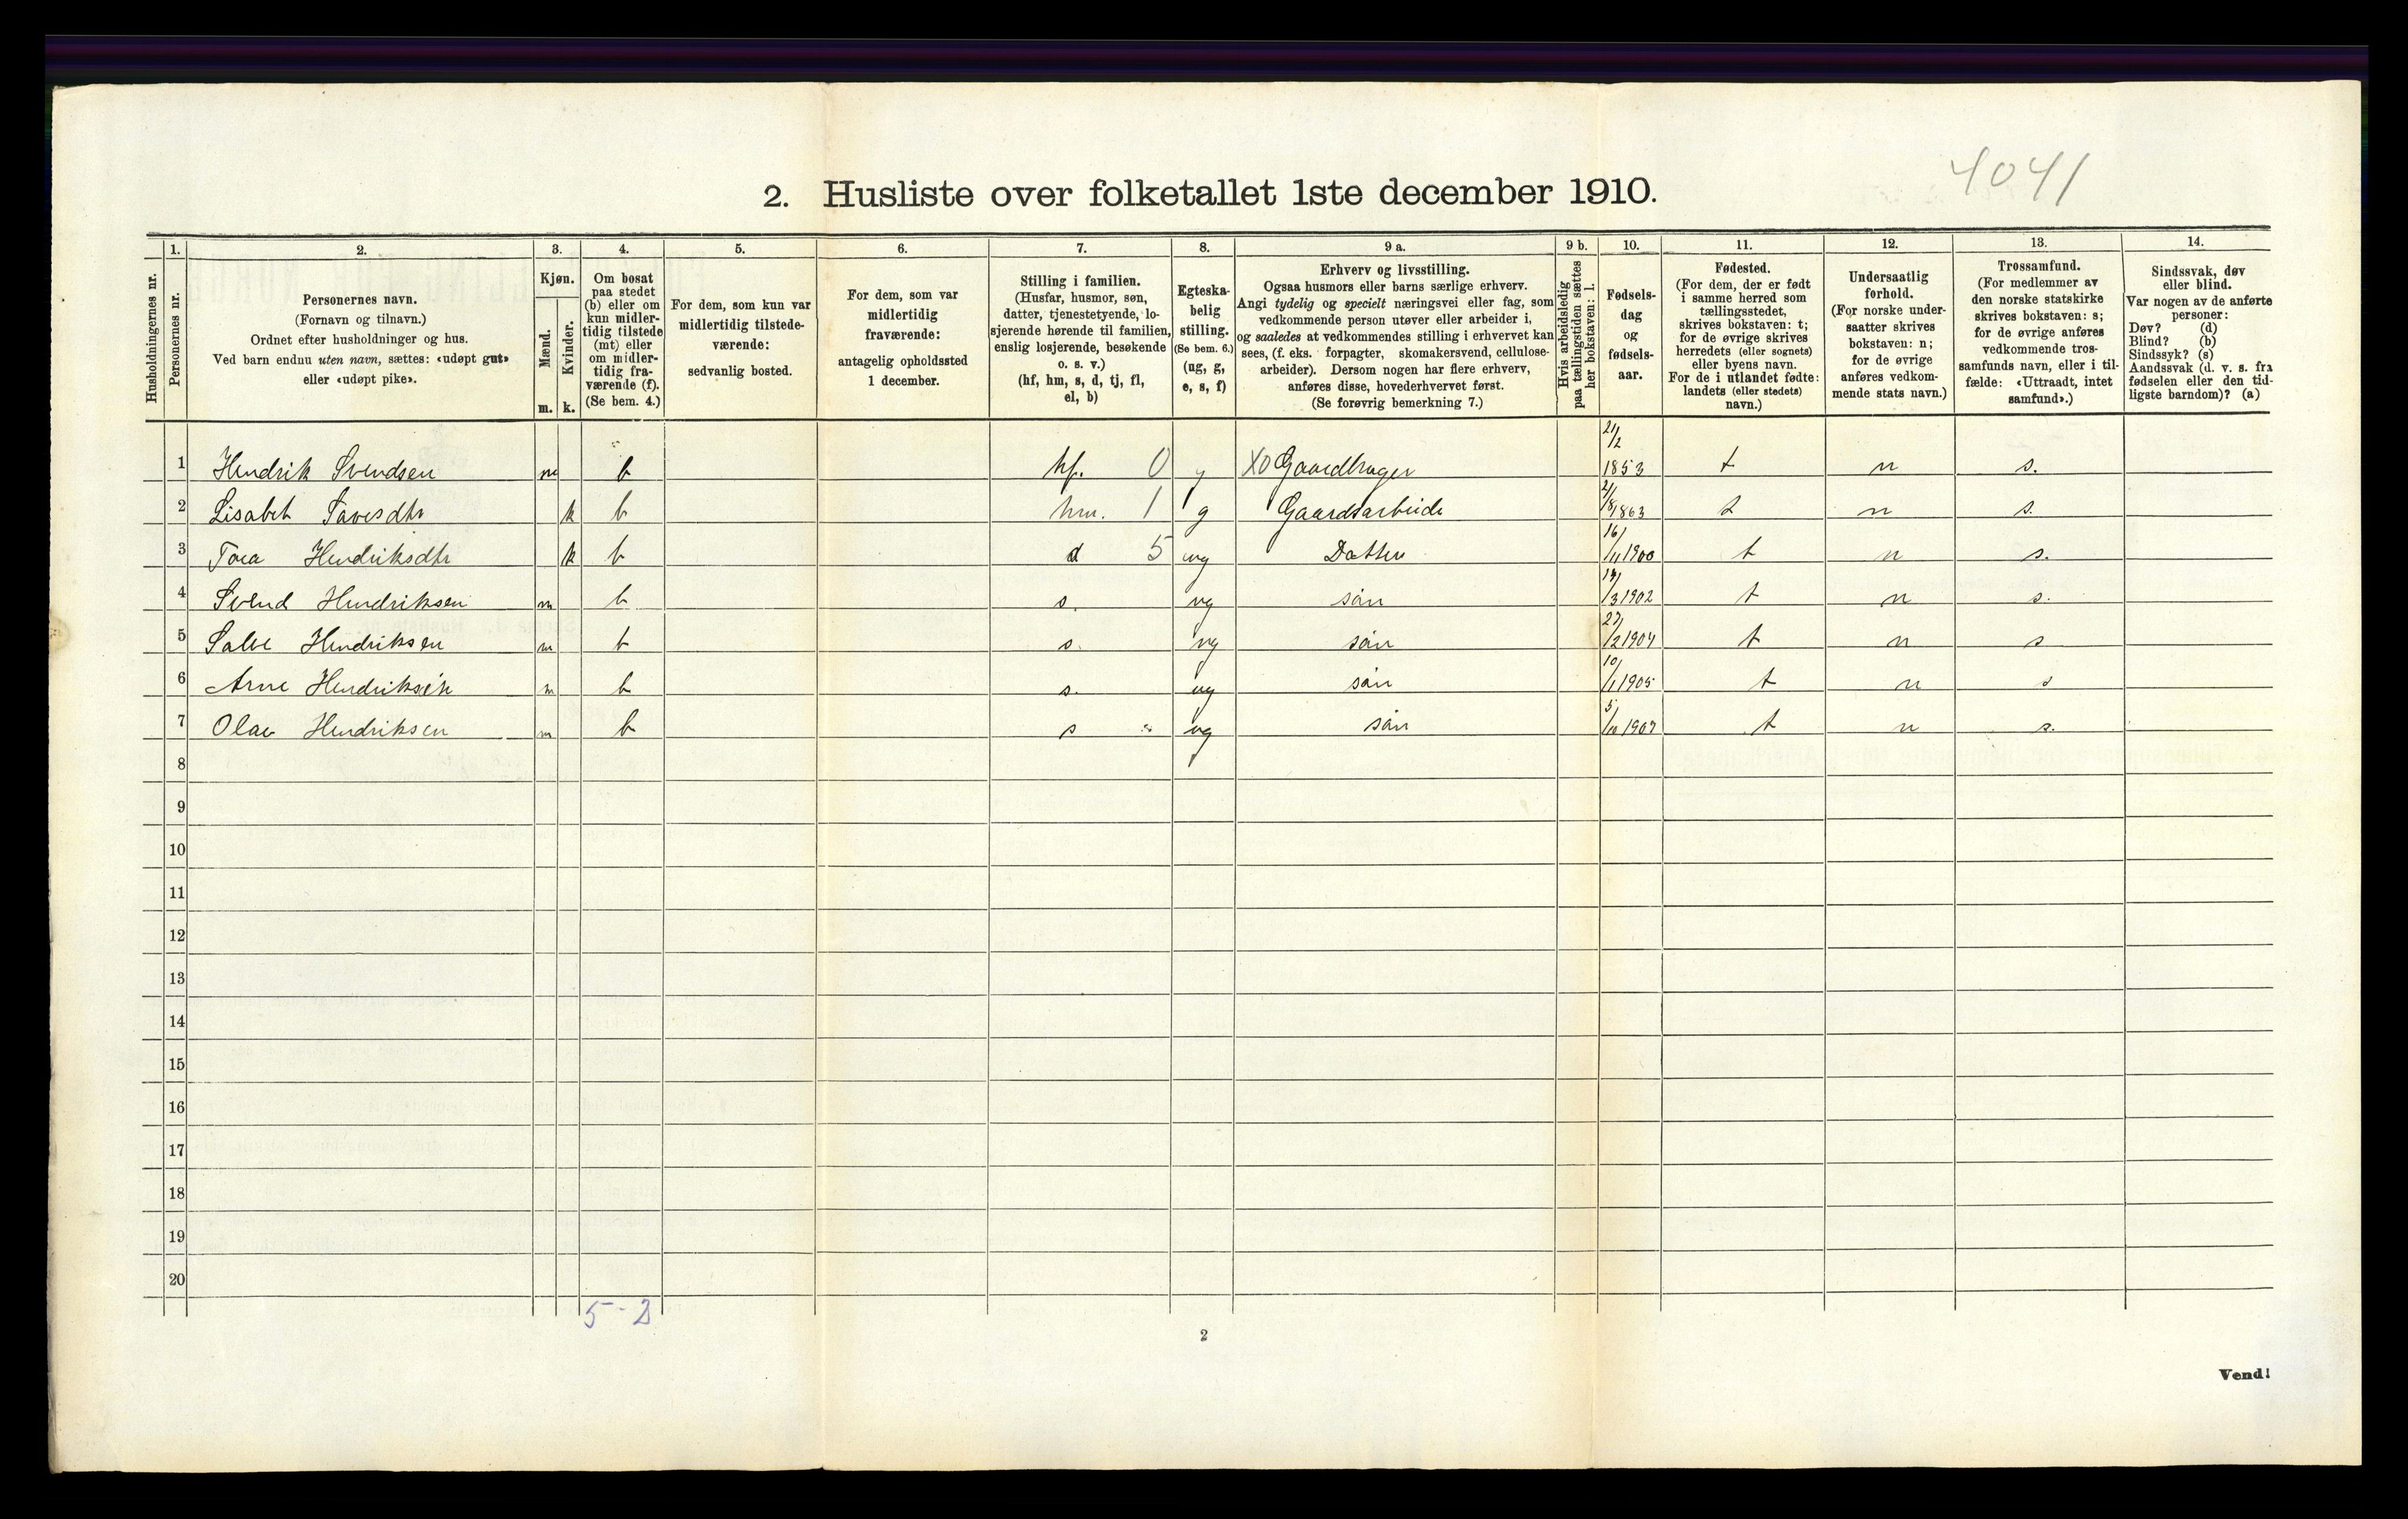 4041
2. Husliste over folketallet 1ste december 1910.
Husholdningernes nr.
1. Personernes nr.
2.
Personernes navn.
(Fornavn og tilnavn.)
Ordnet efter husholdninger og hus.
Ved barn endnu uten navn, sættes: «udøpt gut»
eller «udøpt pike».
3.
Kjøn.
Mænd. Kvinder.
m. k.
4.
Om bosat
paa stedet
(b) eller om
kun midler-
tidig tilstede
(mt) eller
om midler-
tidig fra-
værende (f).
(Se bem. 4.)
5.
For dem, som kun var
midlertidig tilstede-
værende:
sedvanlig bosted.
6.
For dem, som var
midlertidig
fraværende:
antagelig opholdssted
1 december.
7.
Stilling i familien.
(Husfar, husmor, søn,
datter, tjenestetyende, lo-
sjerende hørende til familien,
enslig losjerende, besøkende
o. s. v.)
(hf, hm, s, d, tj, fl,
el, b)
8.
Egteska-
belig
stilling.
(Se bem. 6.)
(ug, g,
e, s, f)
9 a.
Erhverv og livsstilling.
Ogsaa husmors eller barns særlige erhverv.
Angi tydelig og specielt næringsvei eller fag, som
vedkommende person utøver eller arbeider i,
og saaledes at vedkommendes stilling i erhvervet kan
sees, (f. eks. forpagter, skomakersvend, cellulose-
arbeider). Dersom nogen har flere erhverv,
anføres disse, hovederhvervet først.
(Se forøvrig bemerkning 7.)
9 b.
Hvis arbeidsledig
paa tællingstiden sættes
her bokstaven: l.
10.
Fødsels-
dag
og
fødsels-
aar.
11.
Fødested.
(For dem, der er født
i samme herred som
tællingsstedet,
skrives bokstaven: t;
for de øvrige skrives
herredets (eller sognets)
eller byens navn.
For de i utlandet fødte:
landets (eller stedets)
navn.)
12.
Undersaatlig
forhold.
(For norske under-
saatter skrives
bokstaven: n;
for de øvrige
anføres vedkom-
mende stats navn.)
13.
Trossamfund.
(For medlemmer av
den norske statskirke
skrives bokstaven: s;
for de øvrige anføres
vedkommende tros-
samfunds navn, eller i til-
fælde: «Uttraadt, intet
samfund».)
14.
Sindssvak, døv
eller blind.
Var nogen av de anførte
personer:
Døv? (d)
Blind? (b)
Sindssyk? (s)
Aandssvak (d. v. s. fra
fødselen eller den tid-
ligste barndom)? (a)
1 Hendrik Svendsen m b hf. 0 g X0 Gaardbruger 21/2 1853 t n s.
2 Lisabet k b hm. 1 g Gaardsarbeide 2/8 1863 n s.
3 Tora Hendriksdtr k b d 5 ug Datter 16/11 1900 t n s.
4 Svend Hendriksen m b s. ug sön /3 1902 t n s.
5 Salve Hendriksen m b s. ug sön 27/2 1904 t n s
6 Arne Hendriksen m b s. ug sön 10/1 1905 t n s
7 Olav Hendriksen m b s ug sön 5/10 1907 t n s.
8
9
10
11
12
13
14
15
16
17
18
19
20
5 - 2
2
Vend!